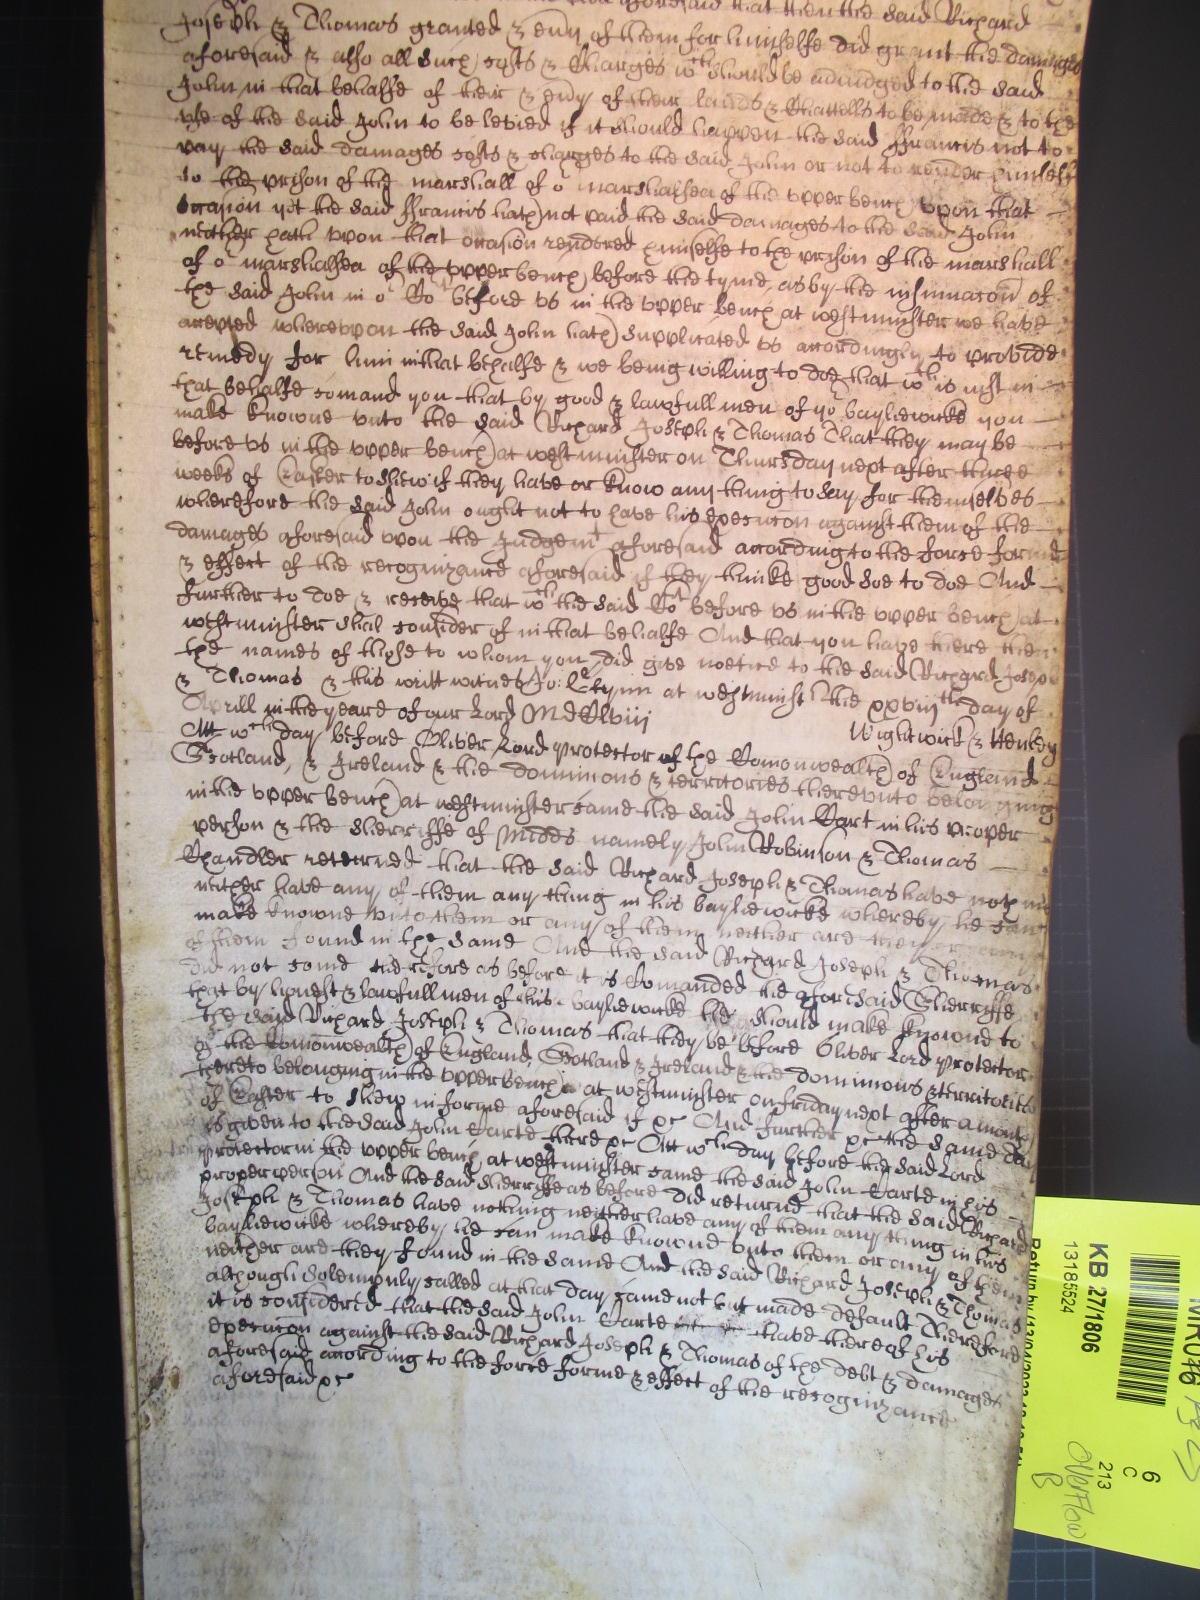 aforesaid that then the said Richard
Joseph & Thomas granted & eũy of them for himselfe did grant the damages
aforesaid & also all such costs & Charges wch should be adiudged to the said
John in that behalfe of their & eũy of their lands & Chattells to be made & to the
vse of the said John to be levied if it should happen the said ffrancis not to
pay the said damages costs & charges to the said John or not to render himselfe
to the prison of the marshall of or marshalsea of the vpper bench vpon that
occasion yet the said ffrancis hath not paid the said damages to the said John
neither hath vpon that occasion rendered himselfe to the prison of the marshall
of or marshalsea of the vpper bench before the tyme as by the insinuacon of
the said John in or Cort before vs in the vpper bench at westminster we have
accepted wherevpon the said John hath supplicated vs accordingly to provide
remedy for him in that behalfe & we being willing to doe that wch is iust in
that behalfe comand you that by good & lawfull men of yor bayliewicke you
make knowne vnto the said Richard Joseph & Thomas That they may be
before vs in the vpper bench at westminster on Thursday next after three
weeks of Easter to shew if they have or know any thing to say for themselves
wherefore the said John ought not to have his execucon against them of the
damages aforesaid vpon the Judgemt aforesaid according to the force forme
& effect of the recognizance aforesaid if they thinke good soe to doe And
further to doe & receive that wch the said Cort before vs in the vpper bench at
westminster shal consider of in that behalfe And that you have there then
the names of those to whom you did give notice to the said Richard Joseph
& Thomas & this writt witnes Jo: Glynn at westminstr the xxviijth day of
Aprill in the yeare of our Lord MdClviij
Wightwick & Henley
Att wch day before Oliver Lord protector of the Comonwealth of England
Scotland, & Ireland & the dominions & territories therevnto belonging
in the vpper bench at westminster came the said John Cart in his proper
person & the sherriffe of Midds namely John Robinson & Thomas
Chandler returned that the said Richard Joseph & Thomas have nothing
neither have any of them any thing in his bayliewicke whereby he can
make knowne vnto them or any of them neither are they or any
of them found in the same And the said Richard Joseph & Thomas
did not come therefore as before it is Comanded the aforesaid Sherriffe
that by honest & lawfull men of his bayliewicke he should make knowne to
the said Richard Joseph & Thomas that they be before Oliver Lord protector
of the Comonwealth of England, Scotland & Ireland & the dominions & territories
thereto belonging in the vpper bench at westminster on friday next after a month
of Easter to shew in forme aforesaid if &c And further &c the same day
is given to the said John Carte there &c Att wch day before the said Lord
protector in the vpper bench at westminster came the said John Carte in his
proper person And the said sherriffe as before did returne that the said Richard
Joseph & Thomas have nothing neither have any of them any thing in his
bayliewicke whereby he can make knowne vnto them or any of them
neither are they found in the same And the said Richard Joseph & Thomas
although solempnly called at that day came not but made default Therefore
it is considered that the said John Carte have thereof his
execucon against the said Richard Joseph & Thomas of the debt & damages
aforesaid according to the force forme & effect of the recognizance
aforesaid &c
KB 27/1806
13185524
6
C
213
Overflow
B